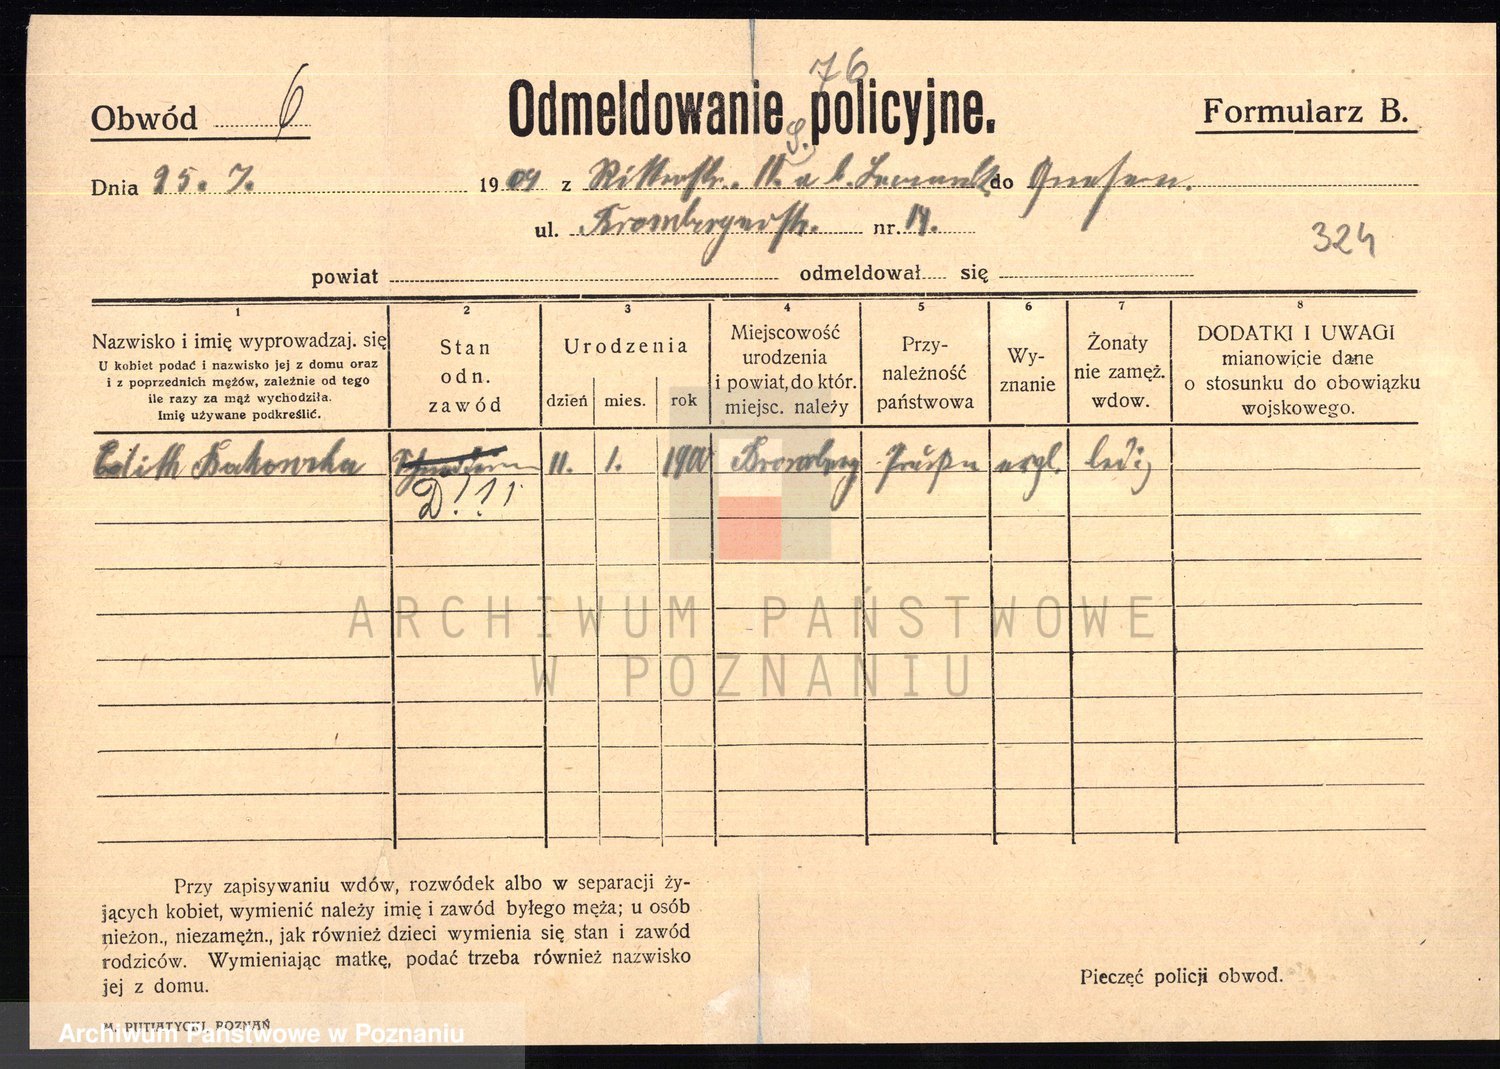 76
Obwód 6
Odmeldowanie policyjne.
Formularz B.
Dnia 25. 7. 1909 z Ritterstr. 11. a b. do Gnesen.
ul. Brombergerstr. nr. 14.
324
powiat odmeldował się
1 2 3 4 5 6 7 8
Nazwisko i imię wyprowadzaj. się
U kobiet podać i nazwisko jej z domu oraz
i z poprzednich mężów, zależnie od tego
ile razy za mąż wychodziła.
Imię używane podkreślić.
Stan
odn.
zawód
Urodzenia
dzień mies. rok
Miejscowość
urodzenia
i powiat, do któr.
miejsc. należy
Przy-
należność
państwowa
Wy-
znanie
Żonaty
nie zamęż.
wdow.
DODATKI I UWAGI
mianowicie dane
o stosunku do obowiązku
wojskowego.
Edith Bukowska 11. 1. 1900 Bromberg Preußen evgl. ledig
D!!!
ARCHIWUM PAŃSTWOWE
W POZNANIU
Przy zapisywaniu wdów, rozwódek albo w separacji ży-
jących kobiet, wymienić należy imię i zawód byłego męża; u osób
nieżon., niezamężn., jak również dzieci wymienia się stan i zawód
rodziców. Wymieniając matkę, podać trzeba również nazwisko
jej z domu.
Pieczęć policji obwod.
M. PUTIATYCKI, POZNAŃ
Archiwum Państwowe w Poznaniu